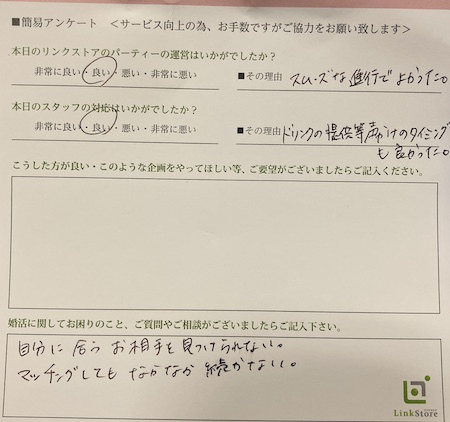 ■簡易アンケート ＜サービス向上の為、お手数ですがご協力をお願い致します＞
本日のリンクストアのパーティーの運営はいかがでしたか？
非常に良い・良い・悪い・非常に悪い ■その理由 スムーズな進行でよかった。
本日のスタッフの対応はいかがでしたか？
非常に良い・良い・悪い・非常に悪い ■その理由 ドリンクの提供等声かけのタイミング
も良かった。
こうした方が良い・このような企画をやってほしい等、ご要望がございましたらご記入ください。
婚活に関してお困りのこと、ご質問やご相談がございましたらご記入下さい。
自分に合うお相手を見つけられない。
マッチングしてもなかなか続かない。
LinkStore